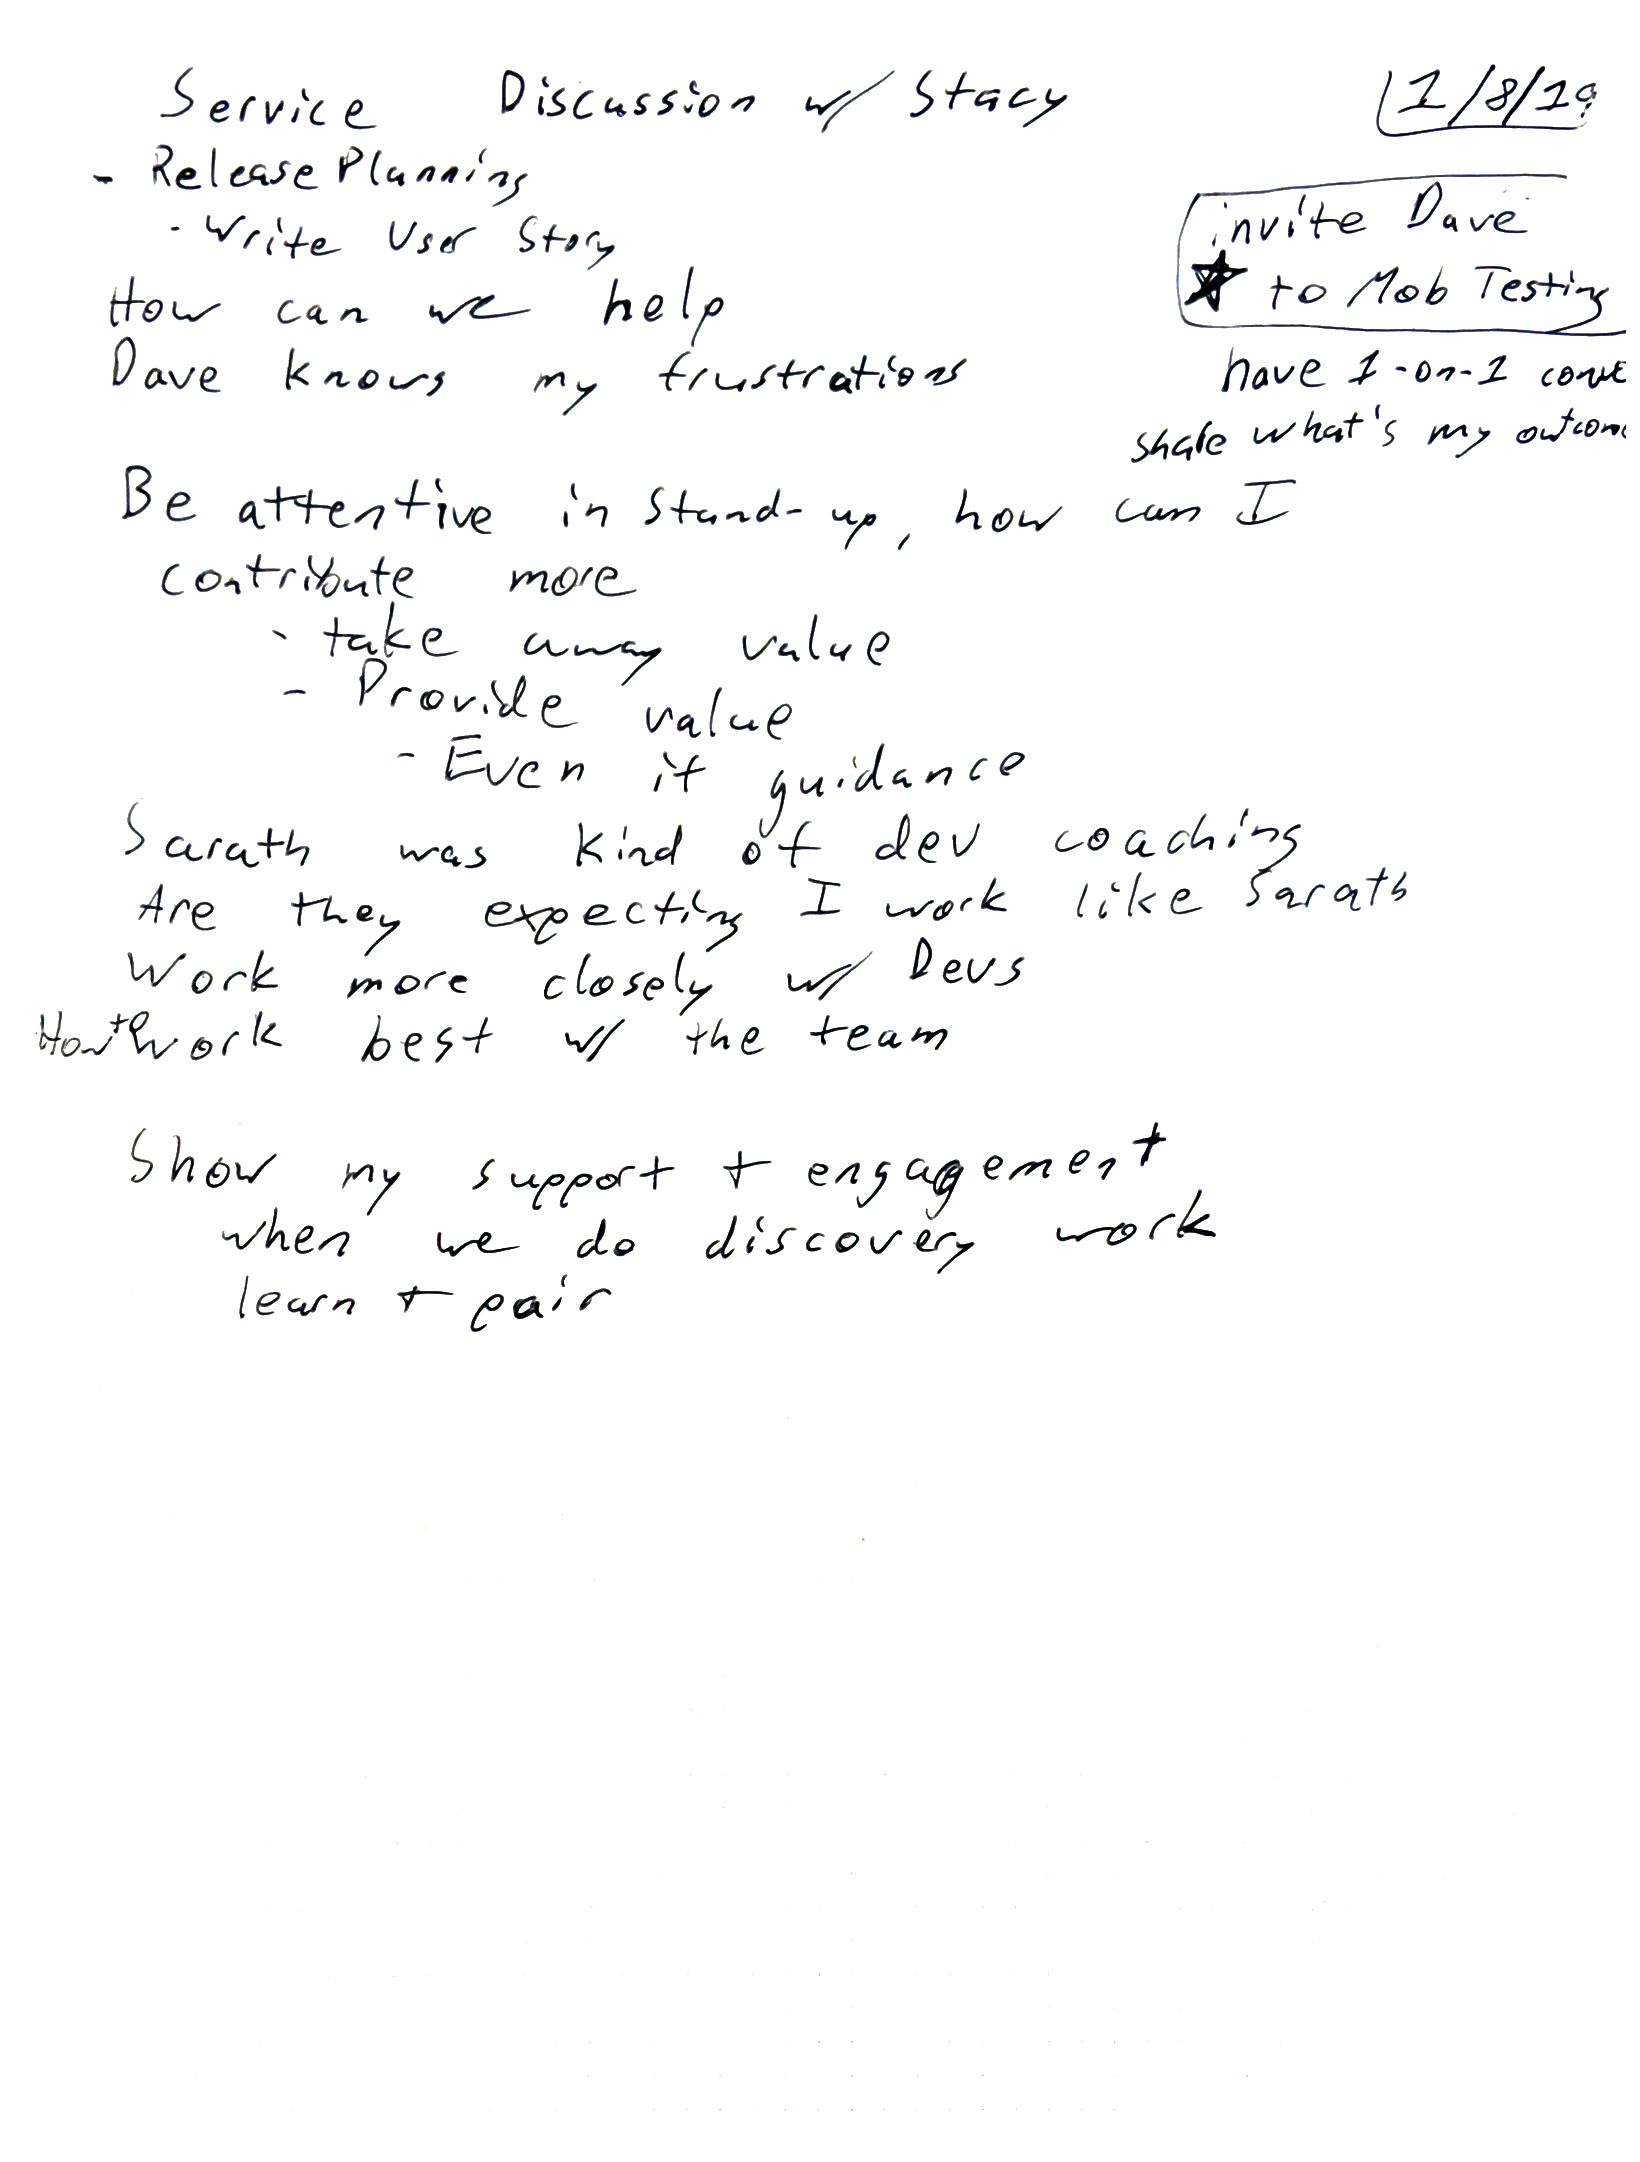 Service Discussion w/ Stacy
1/8/19
- Release Planning
- Write User Story
How can we help
Dave knows my frustrations
invite Dave
★ to Mob Testing
have 1-on-1
share what's my
Be attentive in Stand-up, how can I
contribute more
- take away value
- Provide value
- Even if guidance
Sarath was kind of dev coaching
Are they expecting I work like Sarath
Work more closely w/ Devs
How to Work best w/ the team
Show my support + engagement
when we do discovery work
learn + pair